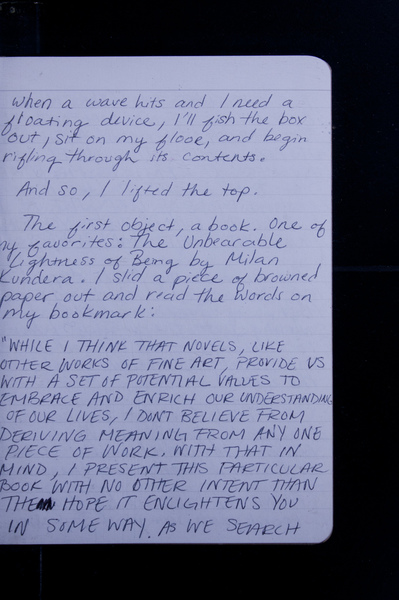 when a wave hits and I need a
floating device, I'll fish the box
out, sit on my flooe, and begin
rifling through its contents.
And so, I lifted the top.
The first object, a book. One of
my favorites: The Unbearable
Lightness of Being by Milan
Kundera. I slid a piece of browned
paper out and read the words on
my bookmark:
"WHILE I THINK THAT NOVELS, LIKE
OTHER WORKS OF FINE ART, PROVIDE US
WITH A SET OF POTENTIAL VALUES TO
EMBRACE AND ENRICH OUR UNDERSTANDING
OF OUR LIVES, I DON'T BELIEVE FROM
DERIVING MEANING FROM ANY ONE
PIECE OF WORK. WITH THAT IN
MIND, I PRESENT THIS PARTICULAR
BOOK WITH NO OTHER INTENT THAN
THE HOPE IT ENLIGHTENS YOU
IN SOME WAY. AS WE SEARCH